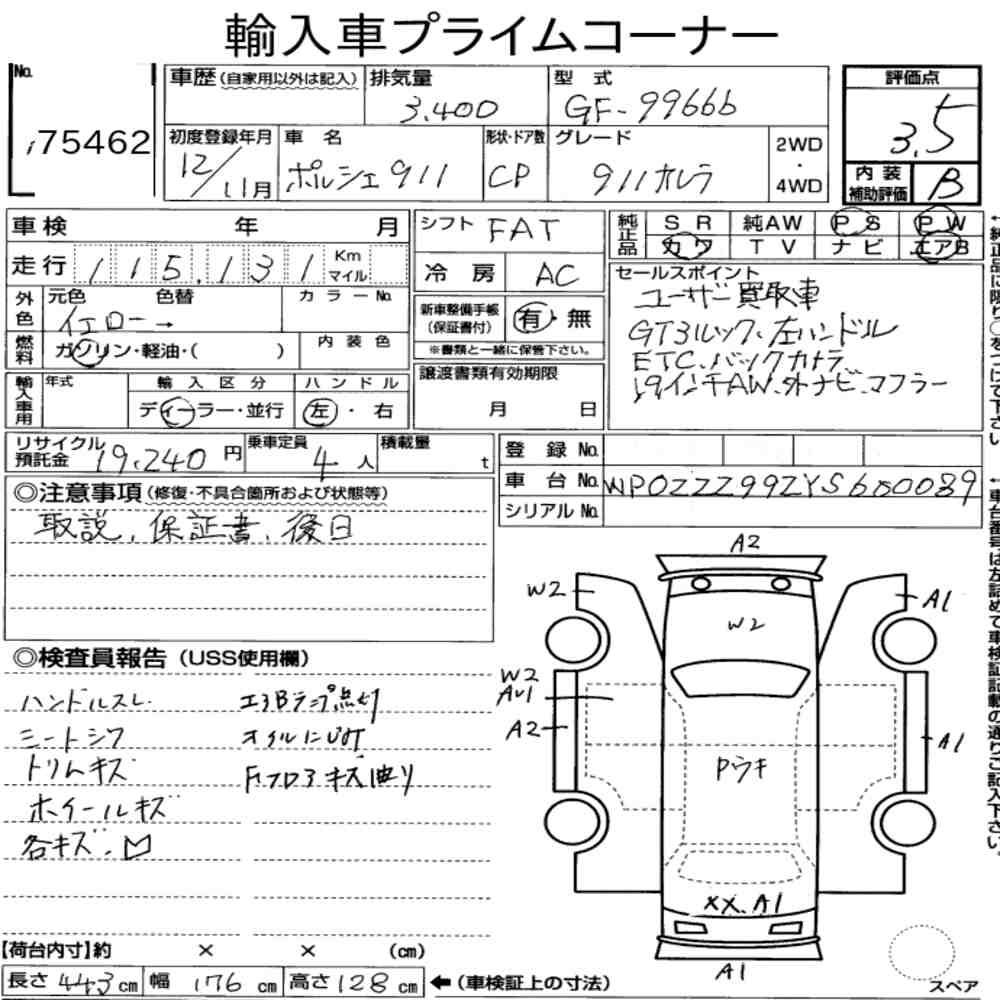 輸入車プライムコーナー
No. 75462
車歴 (自家用以外は記入) 排気量 3,400 型式 GF-99666 評価点 3.5
初度登録年月 12/11月 車名 ポルシェ911 形状・ドア数 CP グレード 911カレラ 2WD・4WD 内装補助評価 B
車検 年 月 シフト FAT 純正品 SR 純AW PS PW
カワ TV ナビ エアB
走行 115,131 Km マイル 冷房 AC
外色 元色 イエロー→ 色替 カラーNo. 新車整備手帳 (保証書付) 有・無
※書類と一緒に保管下さい。
燃料 ガソリン・軽油・( ) 内装色
セールスポイント
ユーザー買取車
GT3ルック、左ハンドル
ETC、バックカメラ
19インチAW、外ナビ、マフラー
輸入車用 年式 輸入区分 ディーラー・並行 ハンドル 左・右
譲渡書類有効期限 月 日
リサイクル預託金 19,240円 乗車定員 4人 積載量 t
登録No.
車台No. WP0ZZZ99ZYS600089
シリアルNo.
◎注意事項 (修復・不具合箇所および状態等)
取説、保証書、後日
◎検査員報告 (USS使用欄)
ハンドルスレ エアBランプ点灯
シートシワ オイルにじみ
トリムキズ
ホイールキズ
各キズ.凹
A2
W2
A1
W2
W2
A2
A1
Pウキ
XX.A1
A1
スペア
【荷台内寸】約 × × (cm)
長さ 443 cm 幅 176 cm 高さ 128 cm ←(車検証上の寸法)
↑純正品に限り○をつけて下さい
↑車台番号は左詰めで車検証記載の通りご記入下さい。